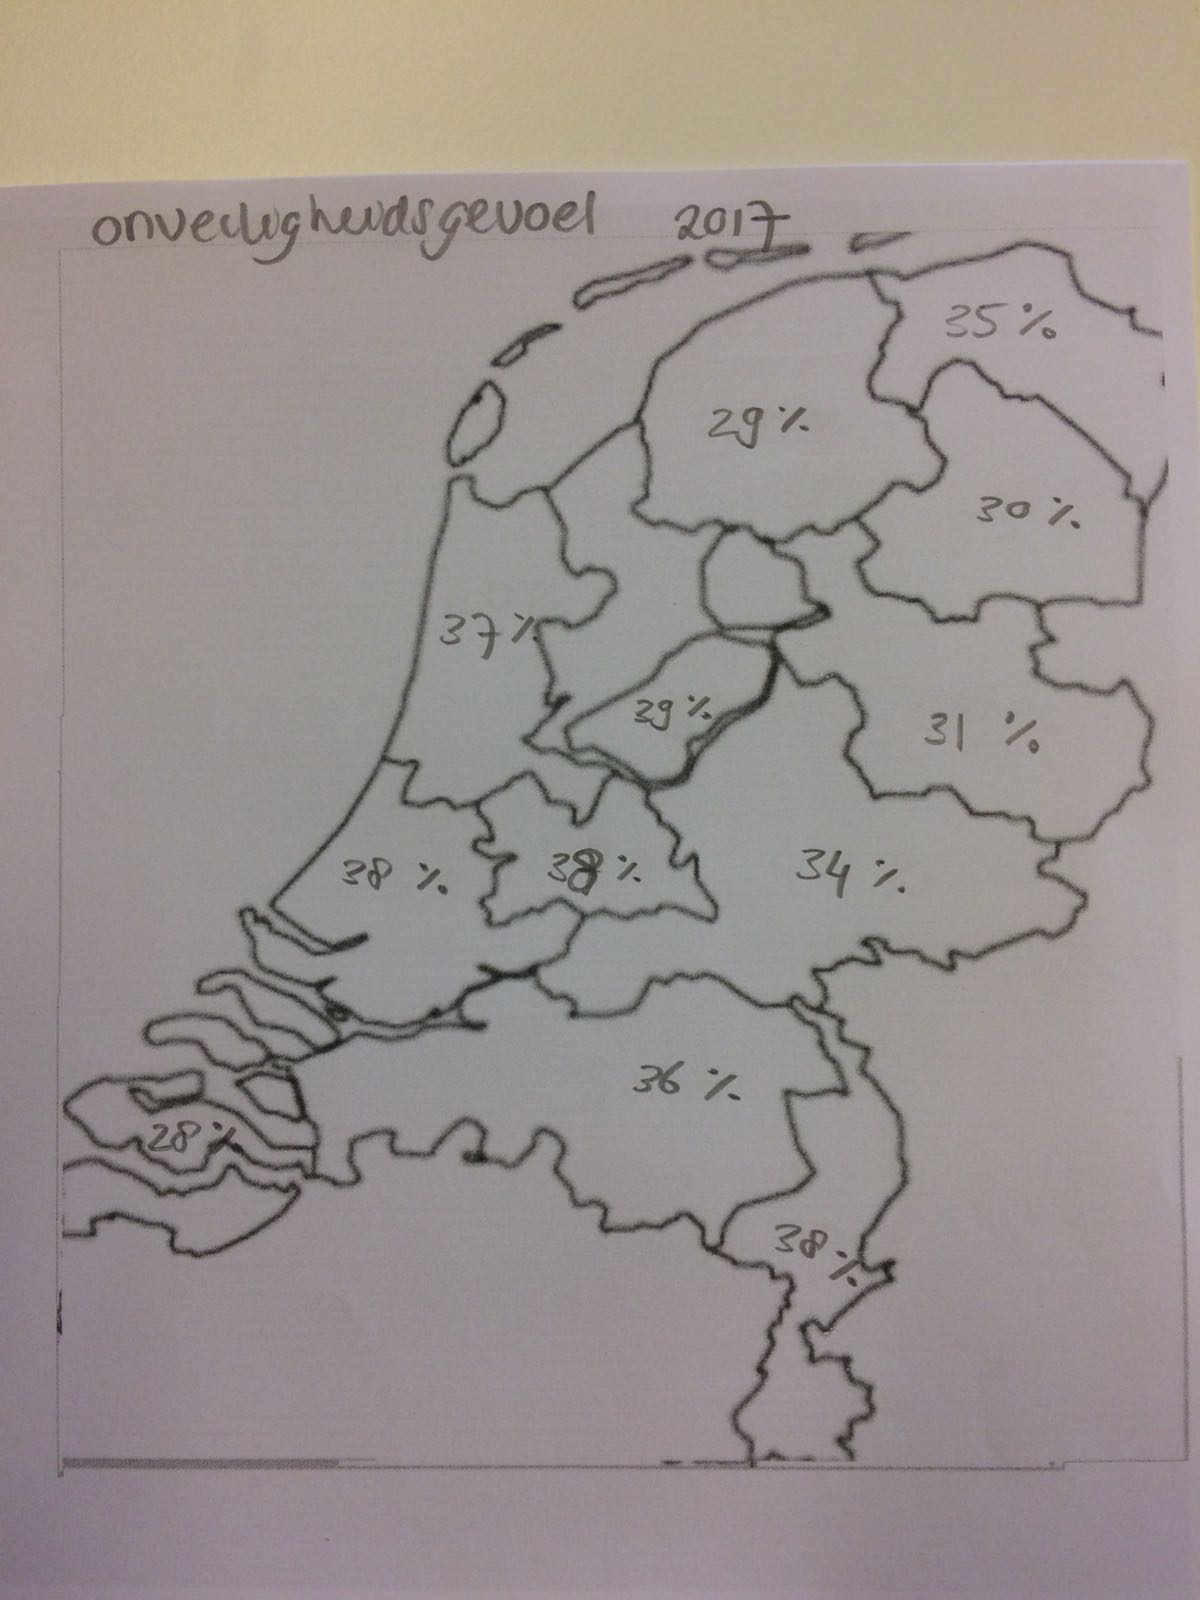 onveiligheidsgevoel 2017
35%
29%
30%
37%
39%
31%
38%
38%
34%
36%
28%
38%